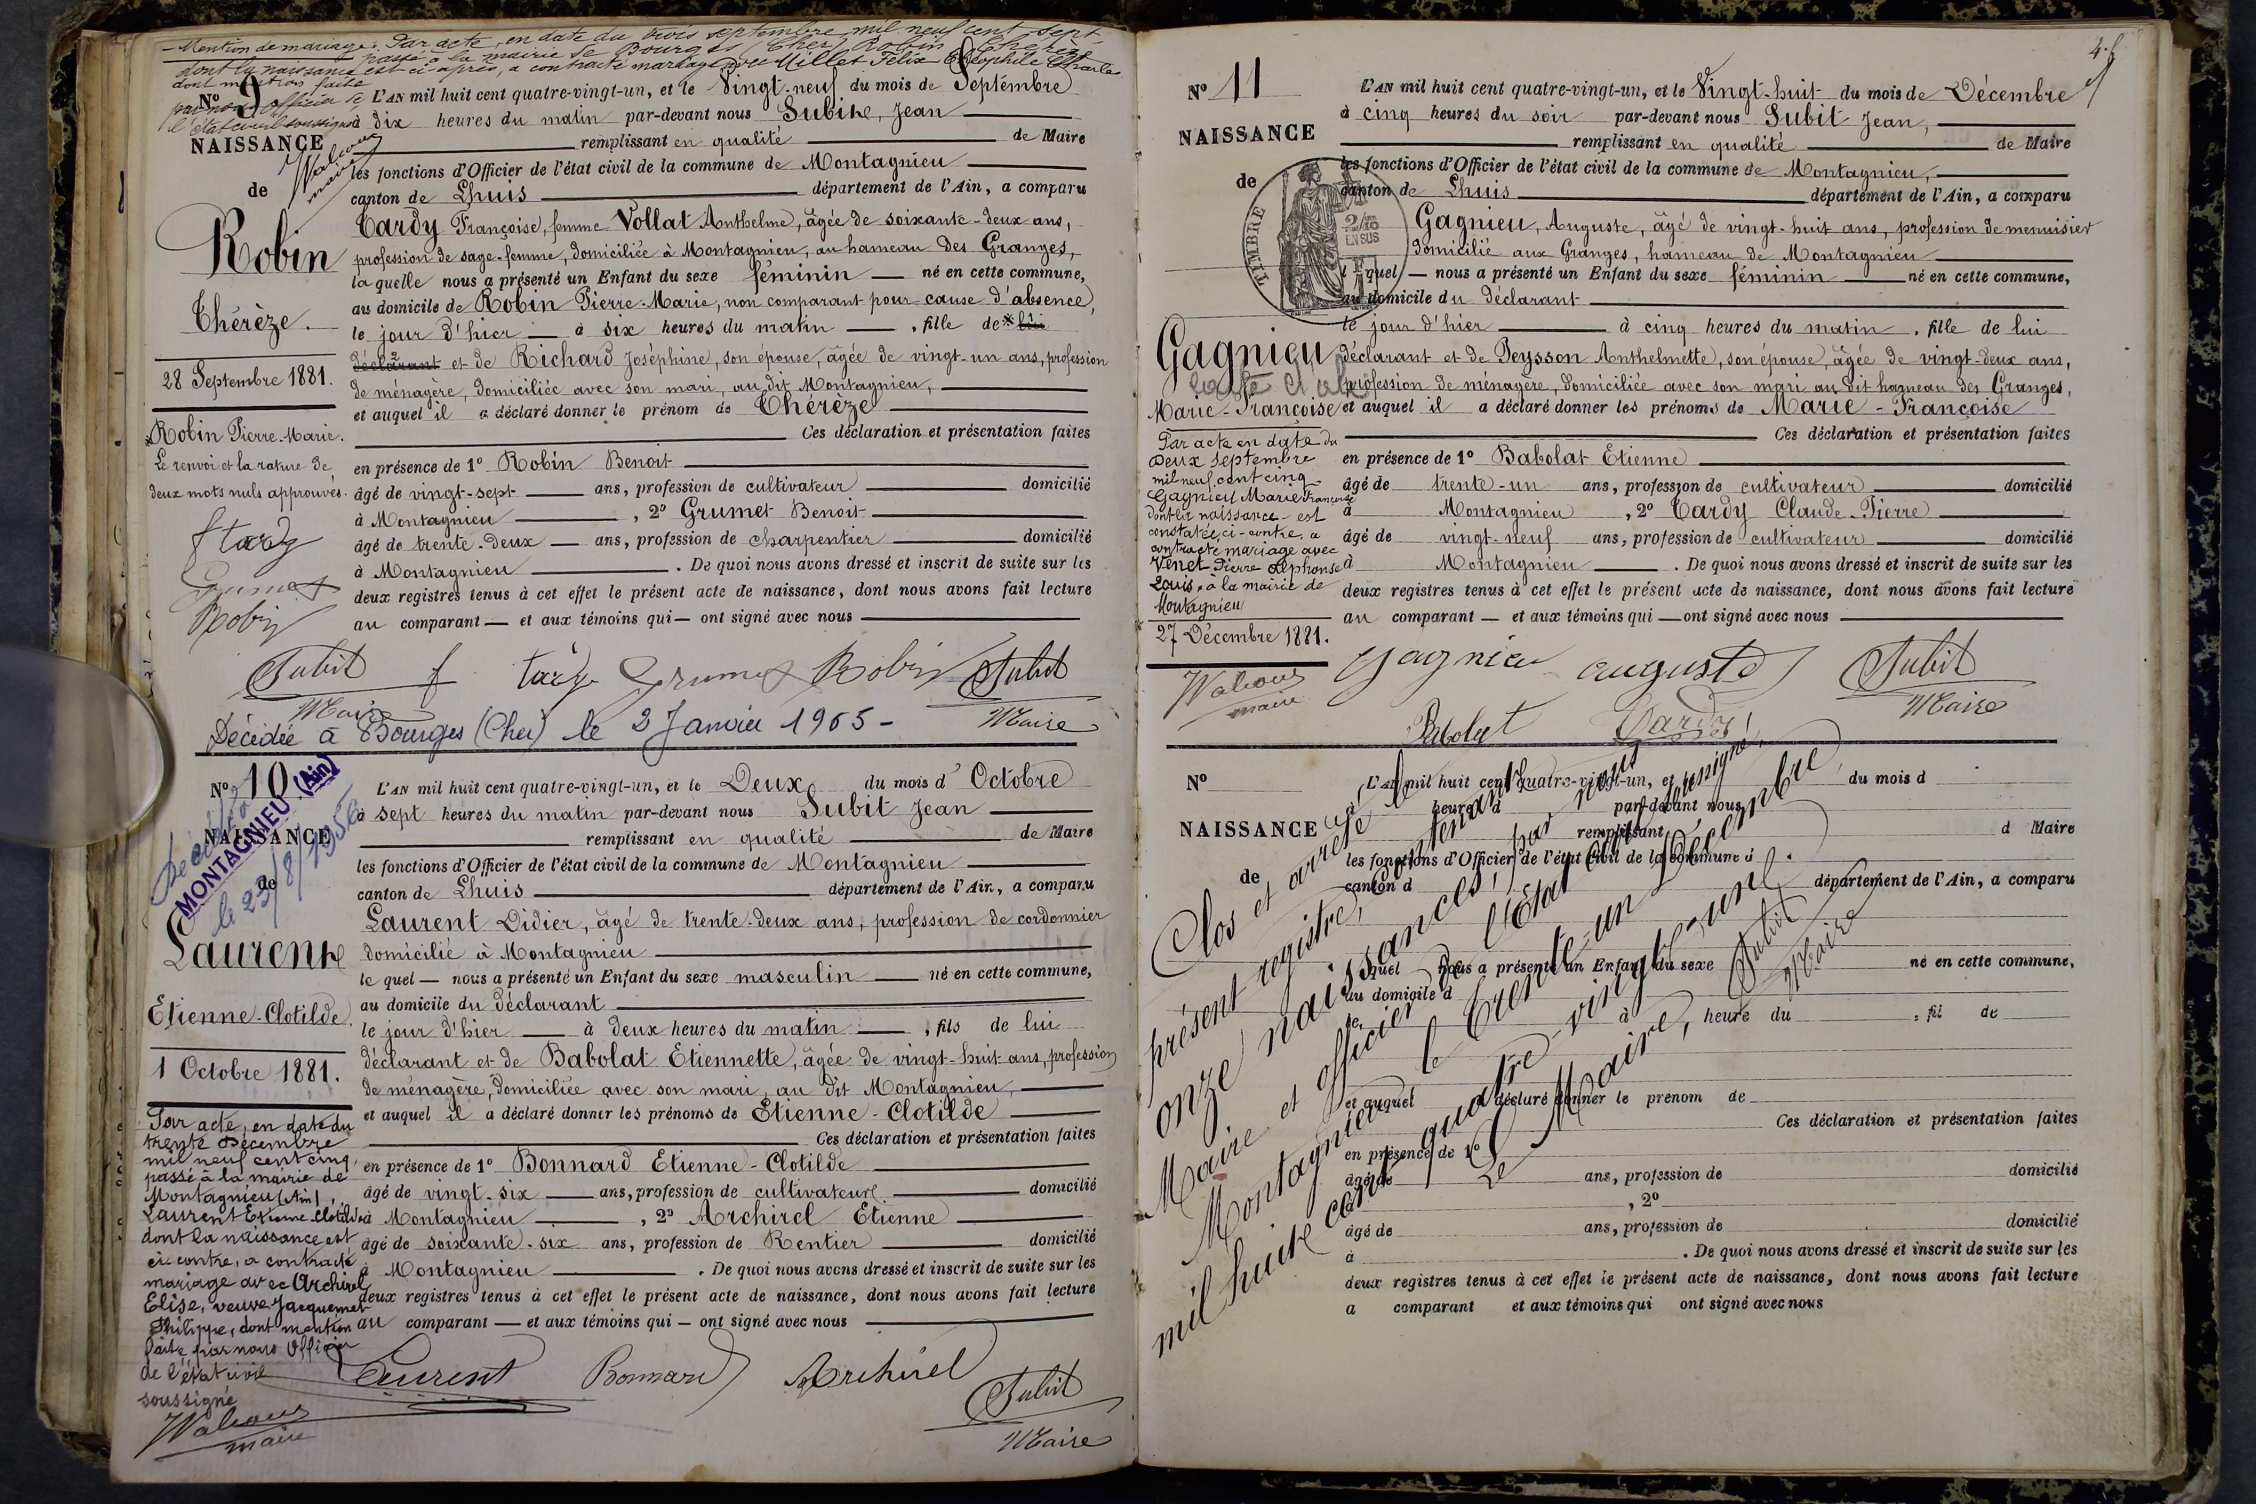 Mention de mariage. Par acte, en date du trois septembre mil neuf cent sept
passé à la mairie de Bourges (Cher) Robin Thérèze
dont la naissance est ci-après, a contracté mariage avec Millet Félix Théophile Charles
dont mention faite
par nous Officier de
l'état civil soussigné
Walioux
maire
N° 9
NAISSANCE
de
Robin
Thérèze.
28 Septembre 1881.
Robin Pierre-Marie.
Le renvoi et la rature de
deux mots nuls approuvés.
f tardy
Grumet
Robin
Subit
Maire
L'AN mil huit cent quatre-vingt-un, et le Vingt-neuf du mois de Septembre
à dix heures du matin par-devant nous Subit, Jean
remplissant en qualité de Maire
les fonctions d'Officier de l'état civil de la commune de Montagnieu
canton de Lhuis département de l'Ain, a comparu
Tardy Françoise, femme Vollat Anthelme, âgée de soixante-deux ans,
profession de sage-femme, domiciliée à Montagnieu, au hameau des Granges,
la quelle nous a présenté un Enfant du sexe féminin né en cette commune,
au domicile de Robin Pierre-Marie, non comparant pour cause d'absence,
le jour d'hier à six heures du matin , fille de * lui
déclarant et de Richard Joséphine, son épouse, âgée de vingt-un ans, profession
de ménagère, domiciliée avec son mari, au dit Montagnieu,
et auquel il a déclaré donner le prénom de Thérèze
Ces déclaration et présentation faites
en présence de 1° Robin Benoit
âgé de vingt-sept ans, profession de cultivateur domicilié
à Montagnieu , 2° Grumet Benoit
âgé de trente-deux ans, profession de charpentier domicilié
à Montagnieu . De quoi nous avons dressé et inscrit de suite sur les
deux registres tenus à cet effet le présent acte de naissance, dont nous avons fait lecture
au comparant et aux témoins qui ont signé avec nous
f tardy Grumet Robin Subit
Maire
Décédée à Bourges (Cher) le 2 Janvier 1965 -
N° 10
NAISSANCE
de
Décédé à
MONTAGNIEU (Ain)
le 23/8/1956
Laurent
Etienne-Clotilde.
1 Octobre 1881.
Par acte, en date du
trente Décembre
mil neuf cent cinq,
passé à la mairie de
Montagnieu (Ain),
Laurent Etienne-Clotilde
dont la naissance est
ci-contre, a contracté
mariage avec Archirel
Elise, veuve Jacquemet
Philippe, dont mention
faite par nous Officier
de l'état civil
soussigné
Walioux
maire
L'AN mil huit cent quatre-vingt-un, et le Deux du mois d' Octobre
à sept heures du matin par-devant nous Subit Jean
remplissant en qualité de Maire
les fonctions d'Officier de l'état civil de la commune de Montagnieu
canton de Lhuis département de l'Ain, a comparu
Laurent Didier, âgé de trente-deux ans, profession de cordonnier
domicilié à Montagnieu
le quel nous a présenté un Enfant du sexe masculin né en cette commune,
au domicile du déclarant
le jour d'hier à deux heures du matin , fils de lui
déclarant et de Babolat Etiennette, âgée de vingt-huit ans, profession
de ménagère, domiciliée avec son mari, au dit Montagnieu,
et auquel il a déclaré donner les prénoms de Etienne-Clotilde
Ces déclaration et présentation faites
en présence de 1° Bonnard Etienne-Clotilde
âgé de vingt-six ans, profession de cultivateur domicilié
à Montagnieu , 2° Archirel Etienne
âgé de soixante-six ans, profession de Rentier domicilié
à Montagnieu . De quoi nous avons dressé et inscrit de suite sur les
deux registres tenus à cet effet le présent acte de naissance, dont nous avons fait lecture
au comparant et aux témoins qui ont signé avec nous
Laurent Bonnard Archirel Subit
Maire
N° 11
NAISSANCE
de
TIMBRE
2/10
EN SUS
Gagnieu
Marie-Françoise
Par acte en date du
Deux Septembre
mil neuf cent cinq
Gagnieu Marie Françoise
dont la naissance est
constatée ci-contre, a
contracté mariage avec
Venet Pierre Alphonse
Louis, à la mairie de
Montagnieu
27 Décembre 1881.
Walioux
maire
L'AN mil huit cent quatre-vingt-un, et le Vingt-huit du mois de Décembre
à cinq heures du soir par-devant nous Subit Jean,
remplissant en qualité de Maire
les fonctions d'Officier de l'état civil de la commune de Montagnieu,
canton de Lhuis département de l'Ain, a comparu
Gagnieu, Auguste, âgé de vingt-huit ans, profession de menuisier
domicilié aux Granges, hameau de Montagnieu
le quel nous a présenté un Enfant du sexe féminin né en cette commune,
au domicile du déclarant
le jour d'hier à cinq heures du matin , fille de lui
déclarant et de Peysson Anthelmette, son épouse, âgée de vingt-deux ans,
profession de ménagère, domiciliée avec son mari au dit hameau des Granges,
et auquel il a déclaré donner les prénoms de Marie-Françoise
Ces déclaration et présentation faites
en présence de 1° Babolat Etienne
âgé de trente-un ans, profession de cultivateur domicilié
à Montagnieu , 2° Tardy Claude-Pierre
âgé de vingt-neuf ans, profession de cultivateur domicilié
à Montagnieu . De quoi nous avons dressé et inscrit de suite sur les
deux registres tenus à cet effet le présent acte de naissance, dont nous avons fait lecture
au comparant et aux témoins qui ont signé avec nous
Gagnieu auguste Subit
Maire
Babolat Tardy
N°
NAISSANCE
de
L'AN mil huit cent quatre-vingt-un, et le du mois d
heures d par-devant nous
remplissant d Maire
les fonctions d'Officier de l'état civil de la commune d
canton d département de l'Ain, a comparu
quel nous a présenté un Enfant du sexe né en cette commune,
au domicile d
le à heure du , fil de
et auquel a déclaré donner le prénom de
Ces déclaration et présentation faites
en présence de 1°
âgé de ans, profession de domicilié
, 2°
âgé de ans, profession de domicilié
à . De quoi nous avons dressé et inscrit de suite sur les
deux registres tenus à cet effet le présent acte de naissance, dont nous avons fait lecture
a comparant et aux témoins qui ont signé avec nous
Clos et arrêté le
présent registre, contenant
onze naissances, par nous soussigné,
Maire et officier de l'Etat civil de
Montagnieu le trente-un Décembre
mil huit cent quatre-vingt-un.
Le Maire,
Subit
Maire